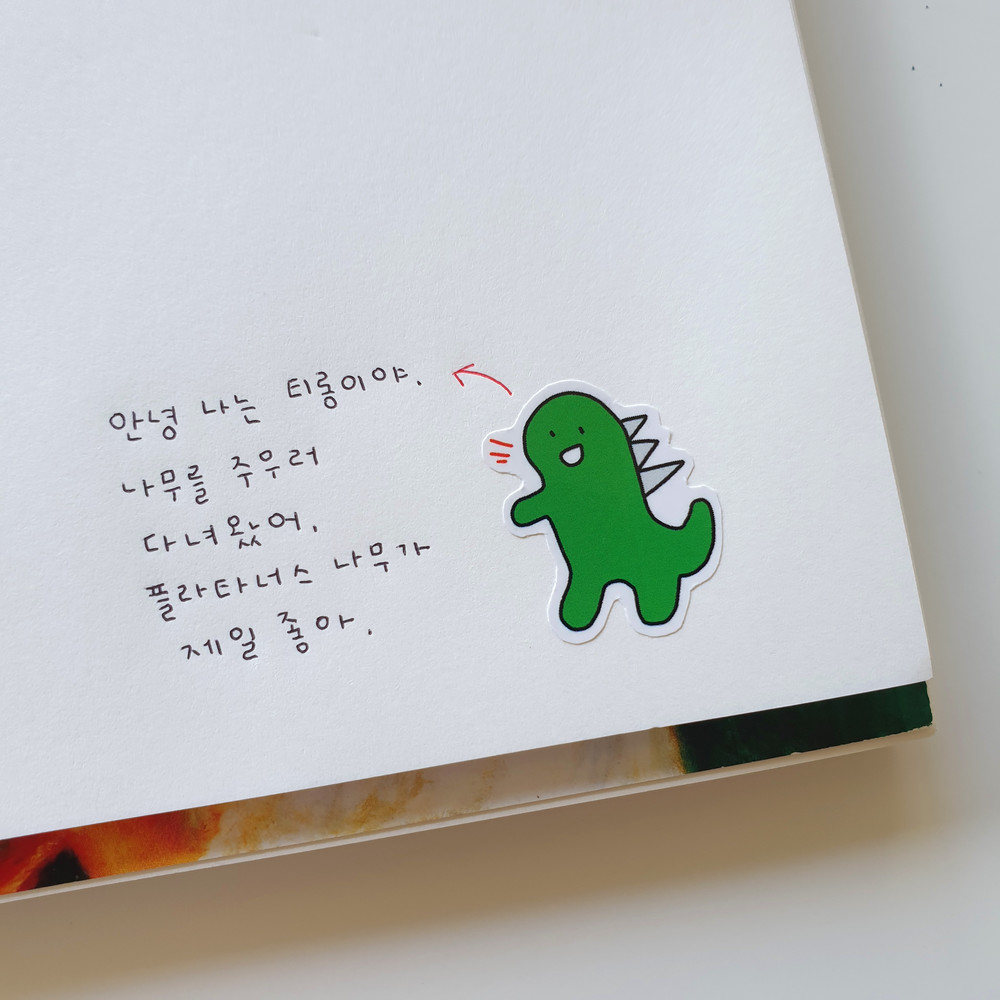 안녕 나는 티롱이야.
나무를 주우러
다녀왔어.
플라타너스 나무가
제일 좋아.